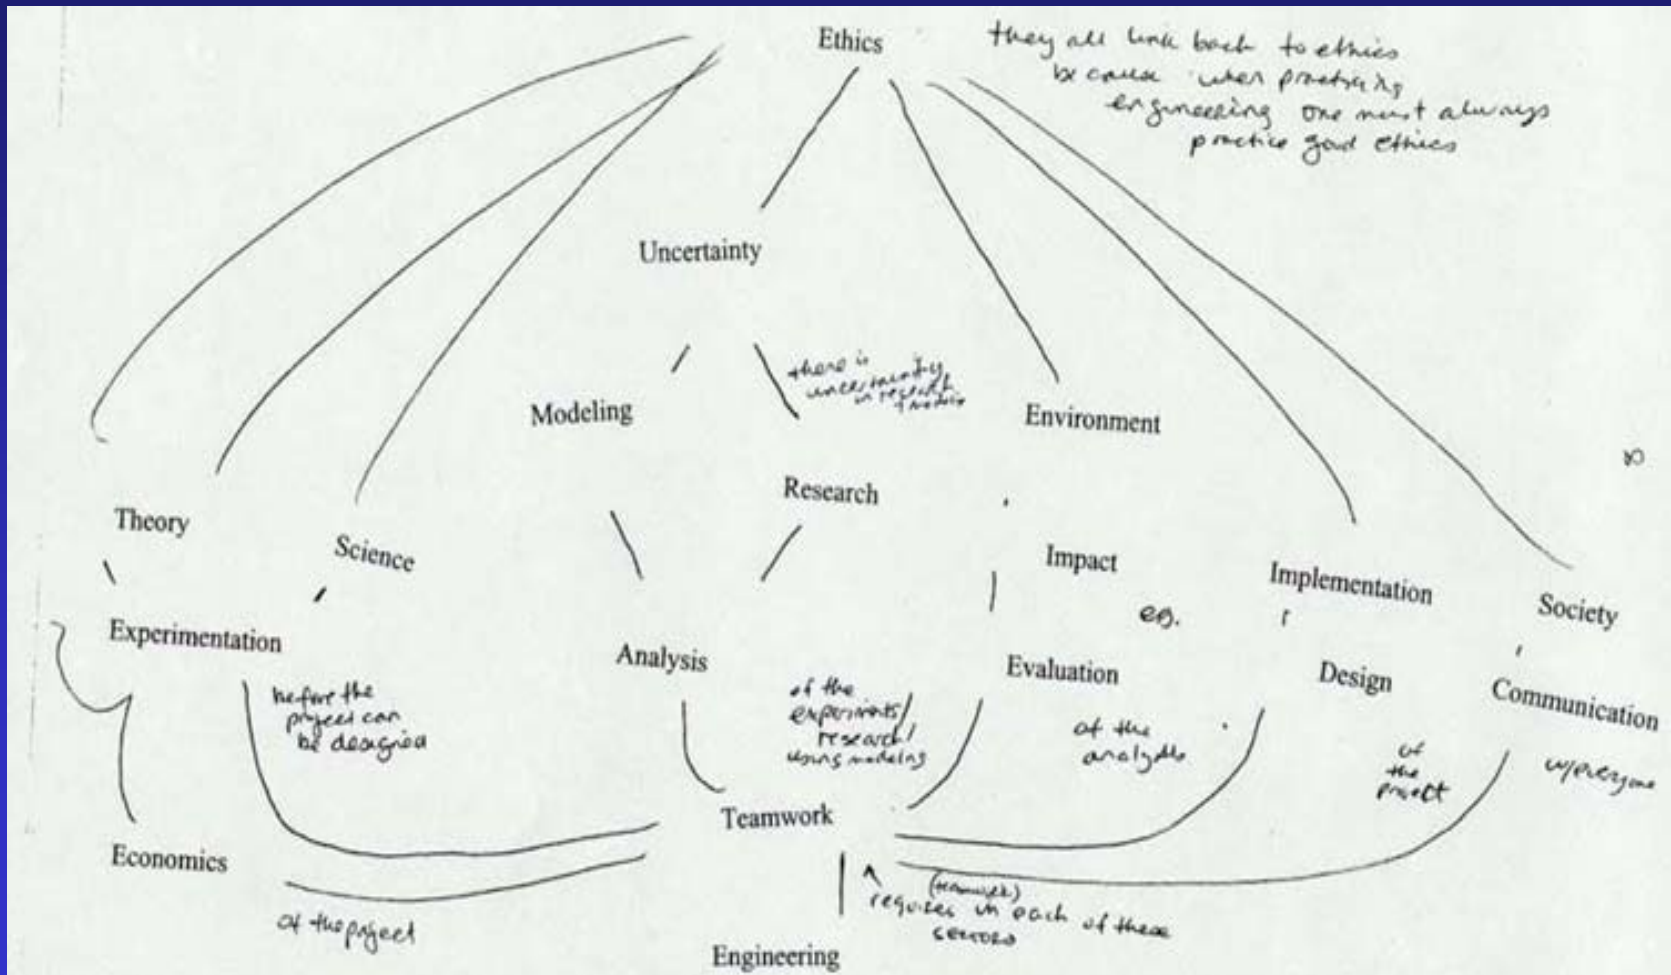 Ethics
they all link back to ethics
because when practicing
engineering one must always
practice good ethics
Uncertainty
there is
uncertainty
in research
Modeling
Environment
Research
Theory
Science
Impact
Implementation
Society
eg.
Experimentation
Analysis
Evaluation
Design
Communication
before the
project can
be designed
of the
experiments/
research/
using modeling
of the
analysis
of
the
project
w/everyone
Teamwork
Economics
(teamwork)
requires in each of these
sectors
of the project
Engineering